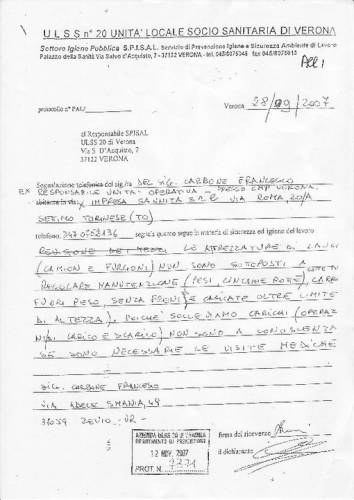 U L S S n° 20 UNITA' LOCALE SOCIO SANITARIA DI VERONA
Settore Igiene Pubblica S.P.I.S.A.L. Servizio di Prevenzione Igiene e Sicurezza Ambiente di Lavoro
Palazzo della Sanità Via Salvo d'Acquisto, 7 - 37122 VERONA - tel. 045/8075045 fax 045/8075013
ALL 1
protocollo n° PAL/
Verona 28/09/2007
al Responsabile SPISAL
ULSS 20 di Verona
Via S. D'Acquisto, 7
37122 VERONA
Segnalazione telefonica del sig/ra DEL SIG. CARBONE FRANCESCO
EX RESPONSABILE UNITA' OPERATIVA - PRESSO CMP VERONA.
abitante in via IMPRESA SANNITA S.R.L VIA ROMA 20/A
SETIMO TORINESE (TO)
telefono: segnala quanto segue in materia di sicurezza ed igiene del lavoro
LE ATTREZZATURE DI LAVORO
(CAMION E FURGONI) NON SONO SOTTOPOSTI A
REGOLARE MANUTENZIONE (
FUORI PESO, SENZA FRONI E CARICATE OLTRE LIMITE
DI ALTEZZA). POICHÈ SOLLEVIAMO CARICHI (OPERAZ
CARICO E SCARICO) NON SONO A CONOSCENZA
SE SONO NECESSARIE LE VISITE MEDICHE
SIG. CARBONE FRANCESCO
VIA ADELE SMANIA, 49
37059 ZEVIO - VR -
AZIENDA ULSS 20 DI VERONA
DIPARTIMENTO DI PREVENZIONE
12 NOV. 2007
PROT. N.
firma del ricevente
il dichiarante